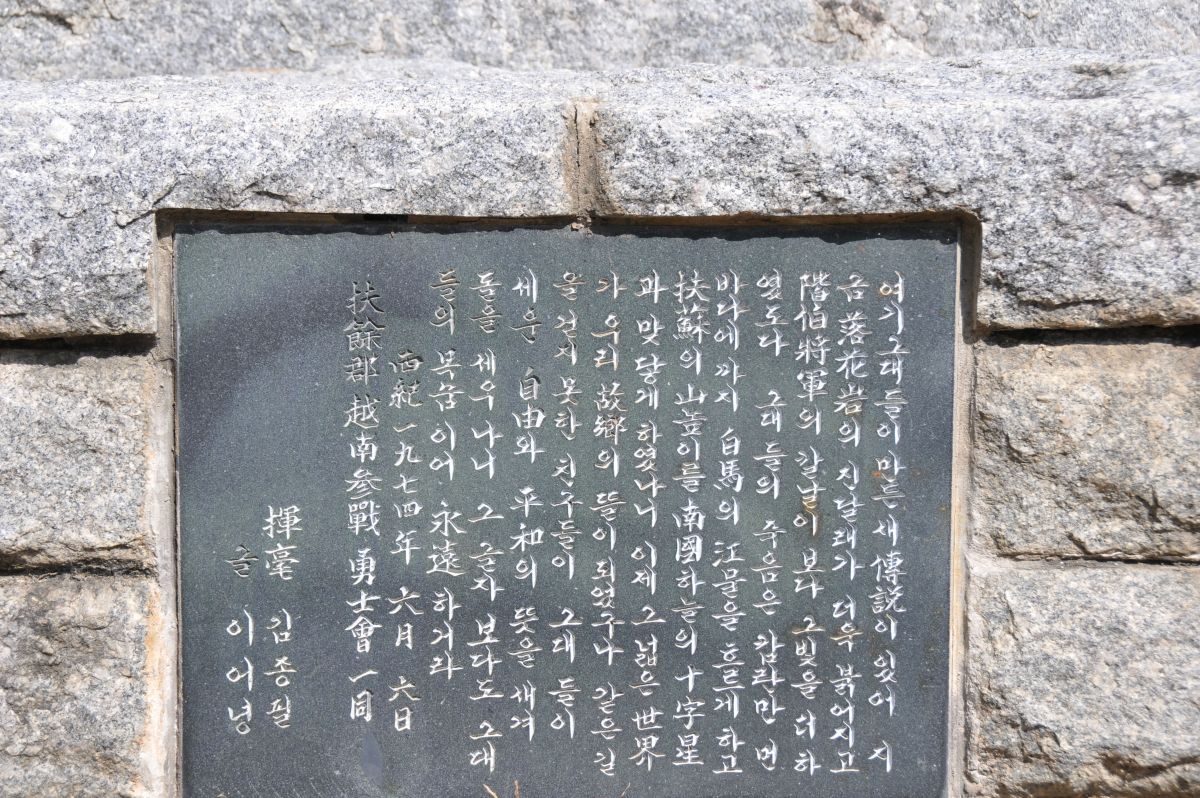 여기 그대들이 마튼 새 傳說이 잇어 지
금 落花岩의 진달래가 더욱 붉어지고
階伯將軍의 칼날이 보다 그 빛을 더하
엿도다 그대들의 죽음은 참란만 먼
바다에까지 白馬의 江물을 흐르게 하고
扶蘇의 山높이를 南國하늘의 十字星
과 맞닿게 하엿나니 이제 그 넓은 世界
가 우리 故鄕의 뜰이 되었구나 같은 길
을 걷지 못한 친구들이 그대들이
세운 自由와 平和의 뜻을 새겨
돌을 세우나니 그 글자 보다도 그대
들의 목숨이어 永遠하거라
西紀 一九七四年 六月 六日
扶餘郡 越南參戰 勇士會 一同
揮毫 김종필
글 이어녕